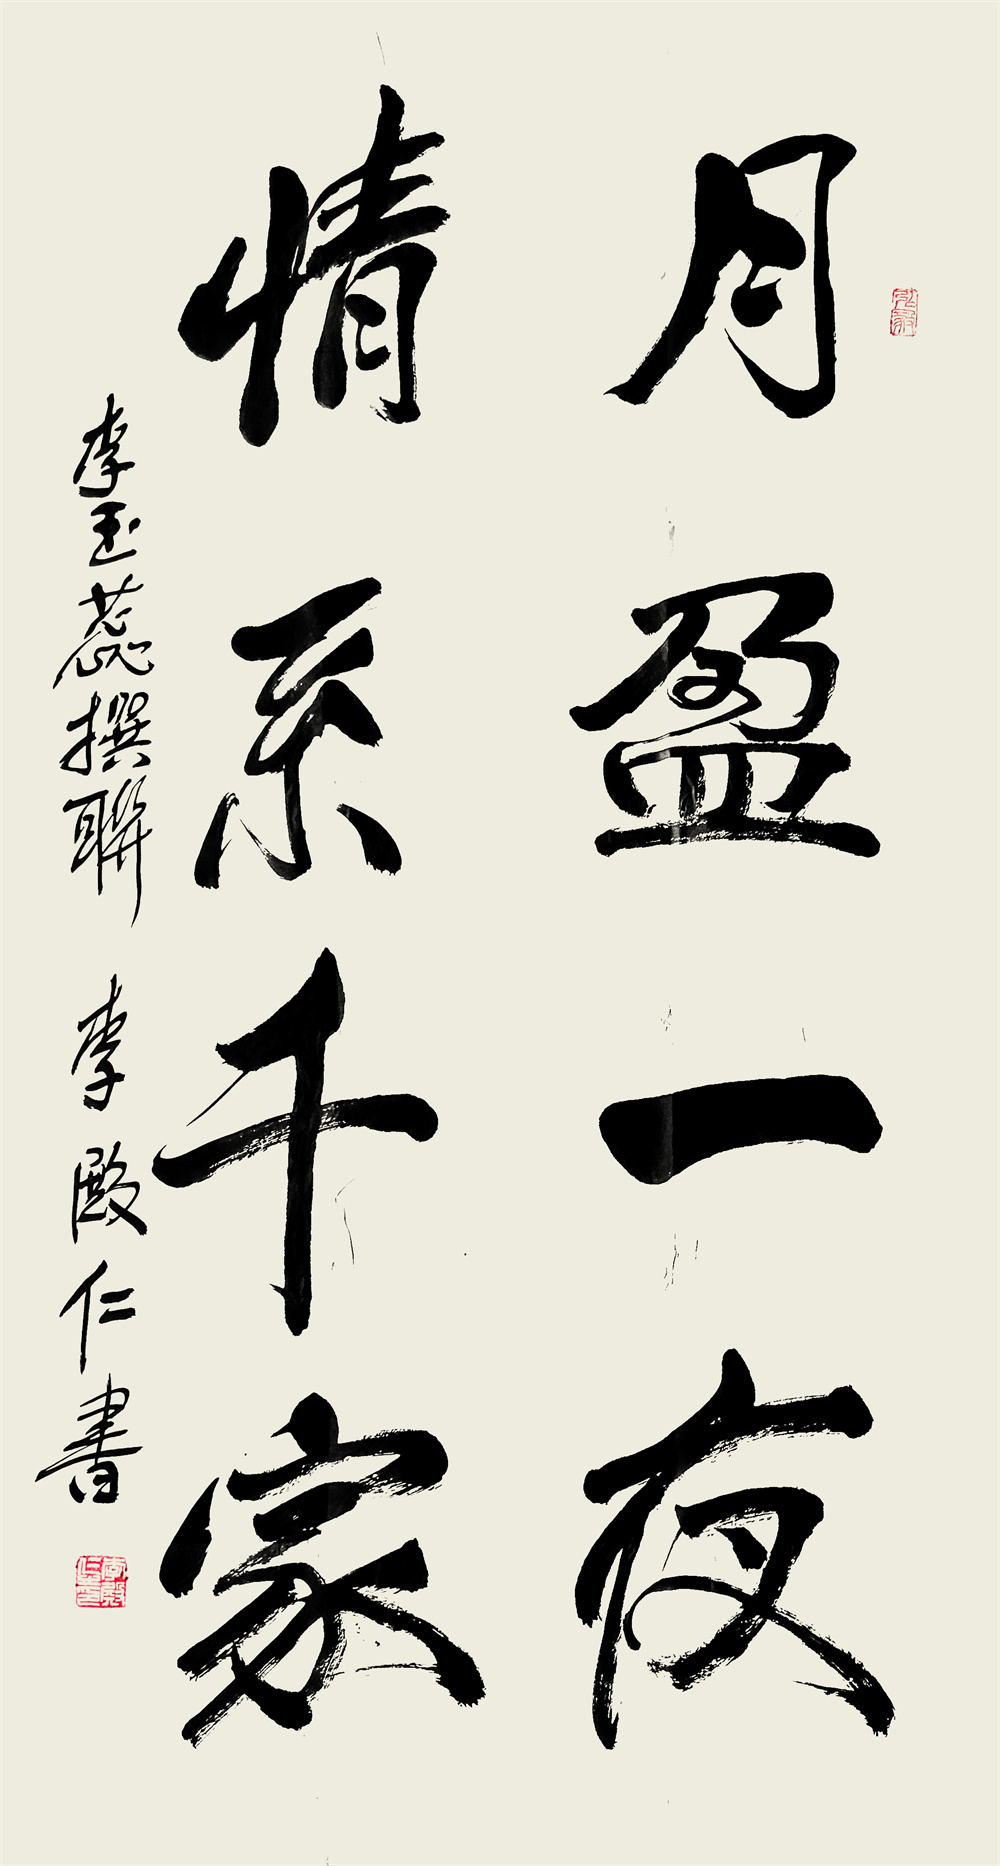 月盈一夜
情系千家
李玉蕊撰聯 李殿仁書